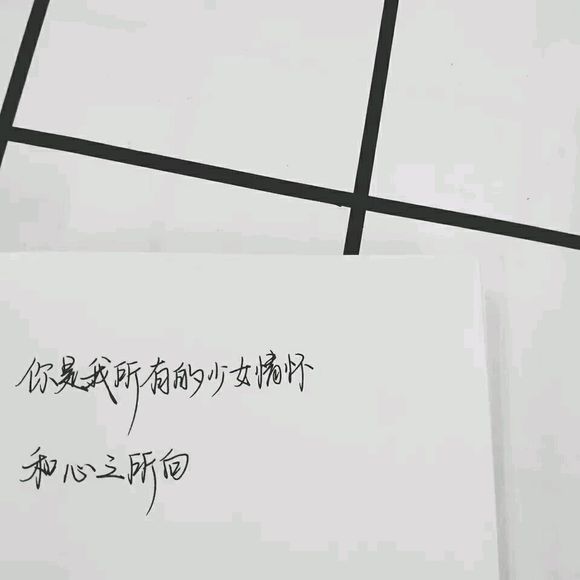 你是我所有的少女情怀
和心之所向